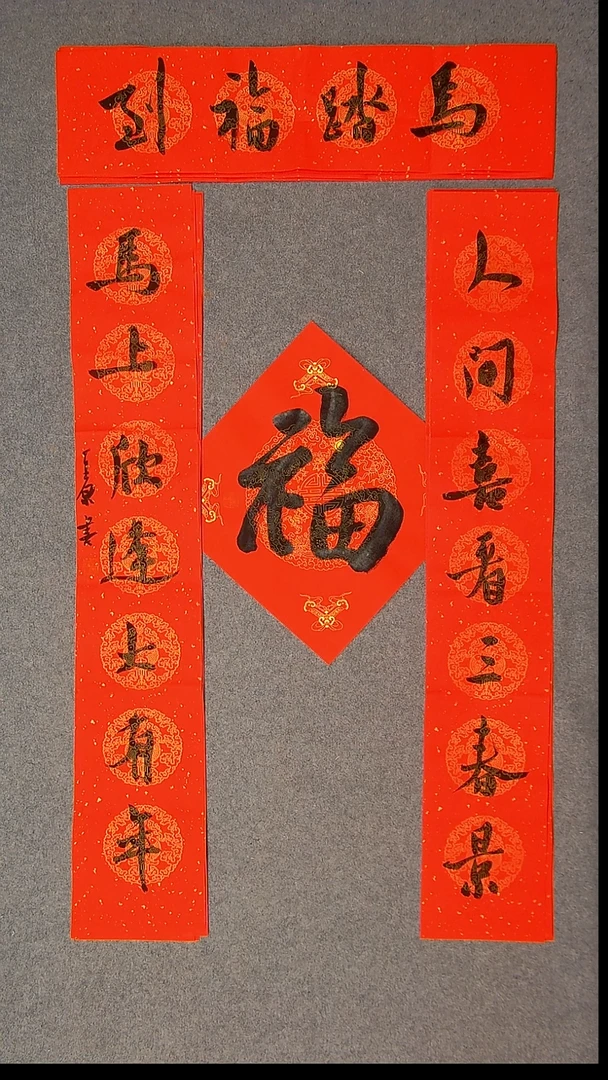 馬踏福到
人间喜看三春景
馬上欣逢大有年
福